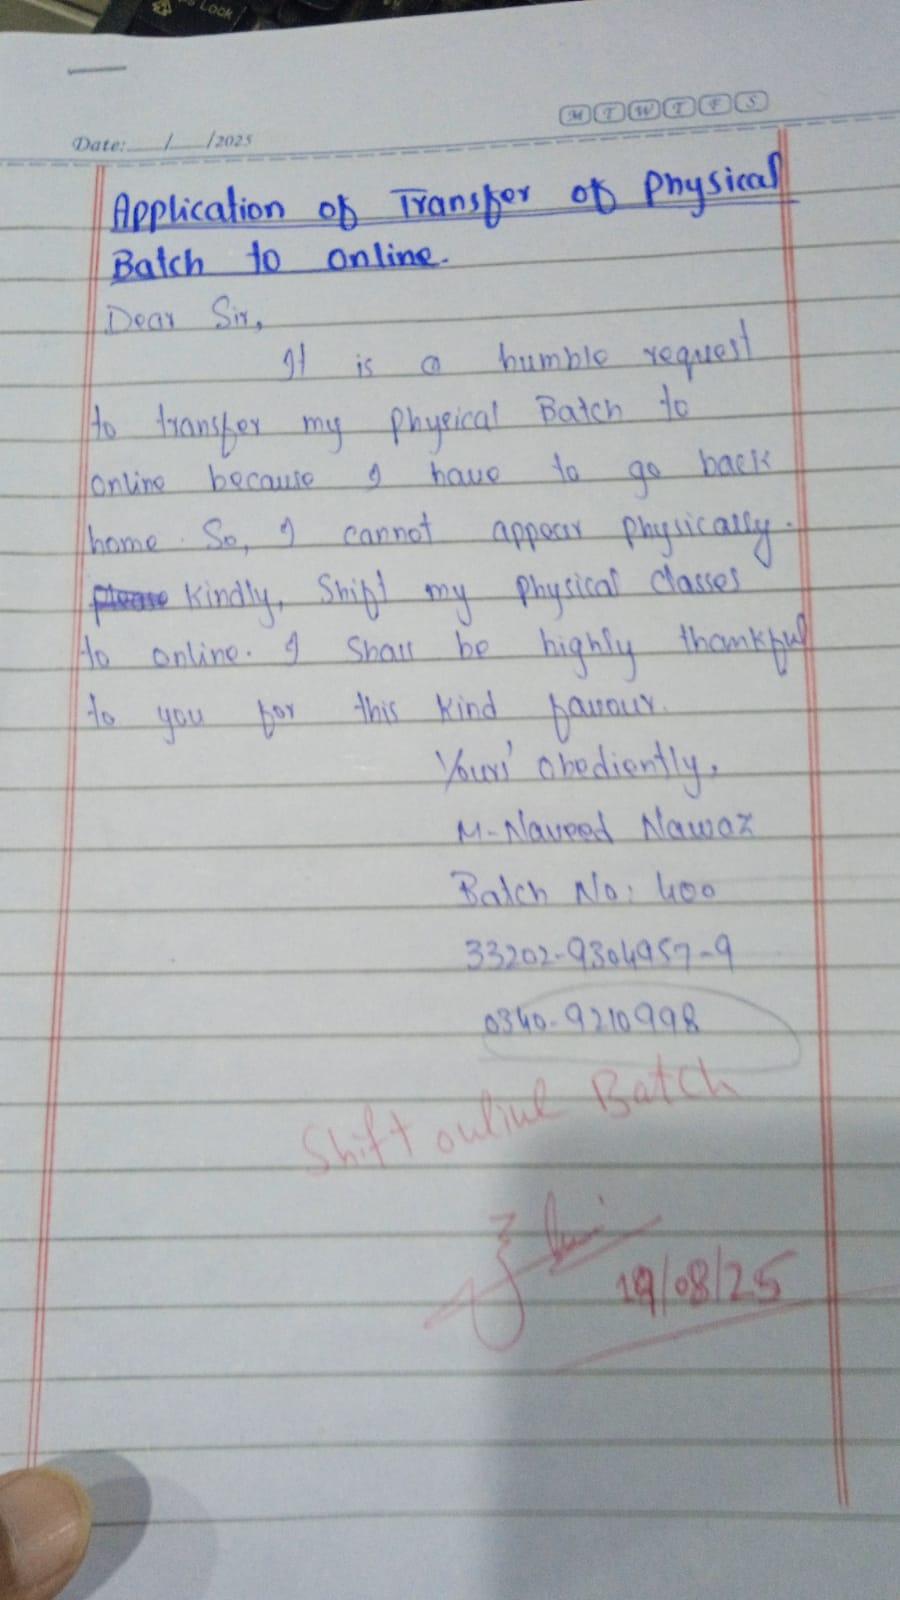 Lock
M T W T F S
Date: / /2025
Application of Transfer of Physical
Batch to online.
Dear Sir,
It is a humble request
to transfer my Physical Batch to
online because I have to go back
home. So, I cannot appear Physically.
please Kindly, Shift my Physical Classes
to online. I Shall be highly thankful
to you for this kind favour.
Yours' obediently,
M-Naveed Nawaz
Batch No: 400
33202-9304957-9
0340-9210998
Shift online Batch
19/08/25